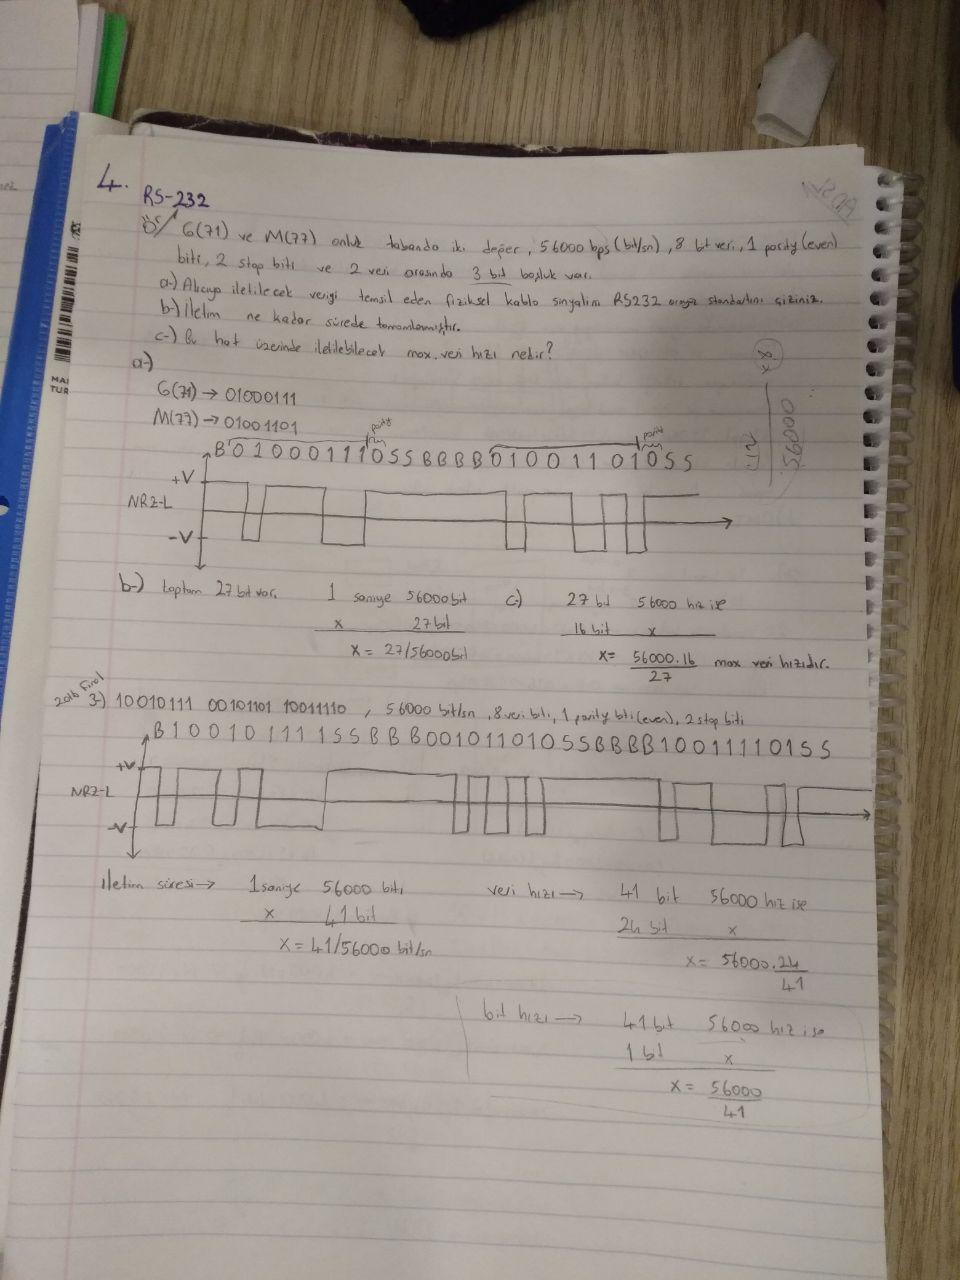 4.
RS-232
ÖS/ G(71) ve M(77) onluk tabanda iki değer, 56000 bps (bit/sn), 8 bit veri, 1 parity (even)
biti, 2 stop biti ve 2 veri arasında 3 bit boşluk var.
a-) Alıcıya iletilecek veriyi temsil eden fiziksel kablo sinyalini RS232 standartını çiziniz.
b-) İletim ne kadar sürede tamamlanmıştır.
c-) Bu hat üzerinde iletilebilecek max. veri hızı nedir?
a-)
G(71) → 01000111
M(77) → 01001101
parity parity
B 0 1 0 0 0 1 1 1 0 S S B B B B 0 1 0 0 1 1 0 1 0 S S
+V
NRZ-L
-V
b-) toplam 27 bit var. 1 saniye 56000 bit c-) 27 bit 56000 hız ise
x 27 bit 16 bit x
x = 27/56000bit x= 56000.16 max veri hızıdır.
27
2016 Final
3-) 10010111 00101101 10011110 , 56000 bit/sn, 8 veri biti, 1 parity biti (even), 2 stop biti
B 1 0 0 1 0 1 1 1 1 S S B B B 0 0 1 0 1 1 0 1 0 S S B B B B 1 0 0 1 1 1 1 0 1 S S
+V
NRZ-L
-V
iletim süresi → 1 saniye 56000 biti veri hızı → 41 bit 56000 hız ise
x 41 bit 24 bit x
x = 41/56000 bit/sn x= 56000.24
41
bit hızı → 41 bit 56000 hız ise
1 bit x
x = 56000
41
56000
MA
TUR